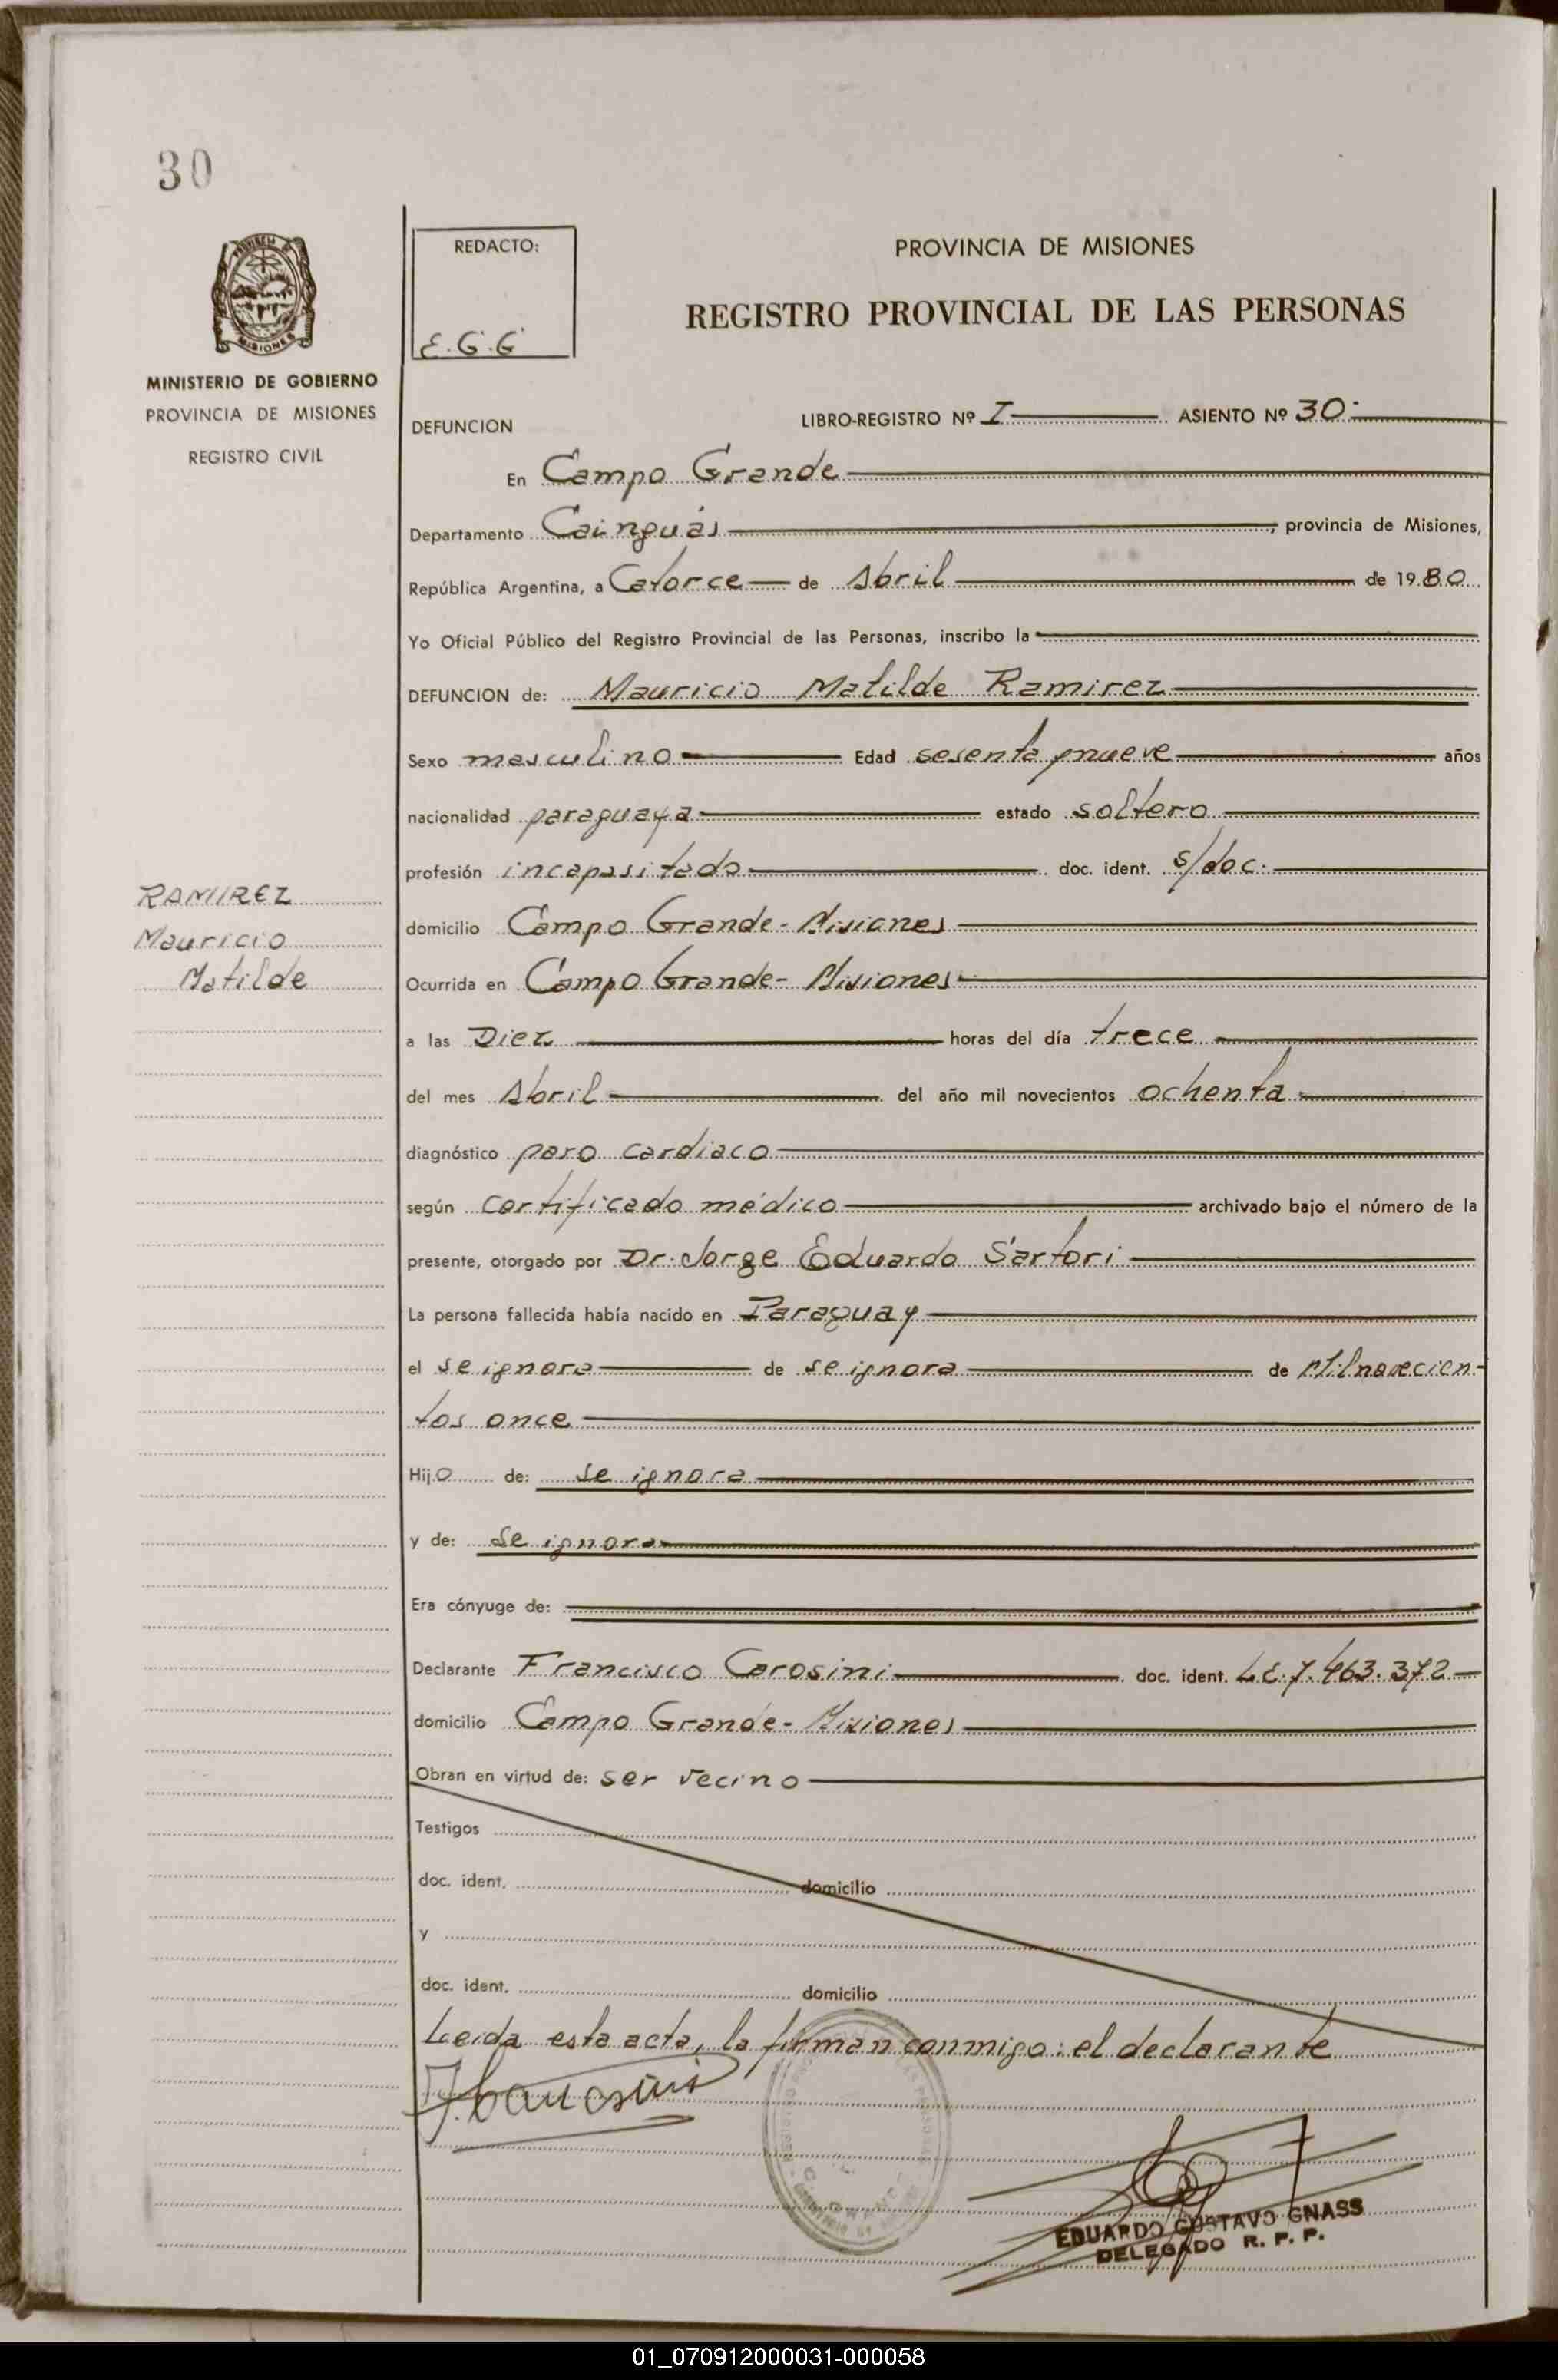 30
PROVINCIA DE MISIONES
MINISTERIO DE GOBIERNO
PROVINCIA DE MISIONES
REGISTRO CIVIL
REDACTO:
E.G.G
PROVINCIA DE MISIONES
REGISTRO PROVINCIAL DE LAS PERSONAS
DEFUNCION LIBRO-REGISTRO Nº I ASIENTO Nº 30
En Campo Grande
Departamento Cainguás, provincia de Misiones,
República Argentina, a Catorce de Abril de 1980
Yo Oficial Público del Registro Provincial de las Personas, inscribo la
DEFUNCION de: Mauricio Matilde Ramirez
Sexo masculino Edad sesenta y nueve años
nacionalidad paraguaya estado soltero
profesión incapasitado doc. ident. s/doc.
RAMIREZ
Mauricio
Matilde
domicilio Campo Grande - Misiones
Ocurrida en Campo Grande - Misiones
a las Diez horas del día trece
del mes Abril del año mil novecientos ochenta
diagnóstico paro cardiaco
según certificado médico archivado bajo el número de la
presente, otorgado por Dr. Jorge Eduardo Sartori
La persona fallecida había nacido en Paraguay
el se ignora de se ignora de Mil novecien-
tos once
Hijo de: se ignora
y de: se ignora
Era cónyuge de:
Declarante Francisco Carosini doc. ident. L.E. 7.463.372
domicilio Campo Grande - Misiones
Obran en virtud de: ser vecino
Testigos
doc. ident. domicilio
y
doc. ident. domicilio
Leida esta acta, la firman conmigo: el declarante
EDUARDO GUSTAVO GNASS
DELEGADO R. P. P.
01_070912000031-000058